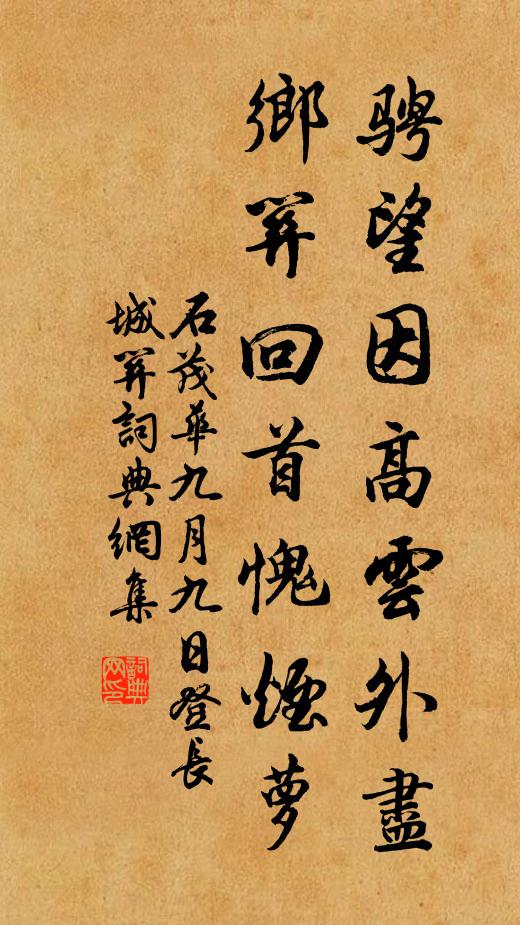 騁望因高雲外盡
鄉關回首愧煙萝
石茂華九月九日登長
城關詞典網集
詞典
网印